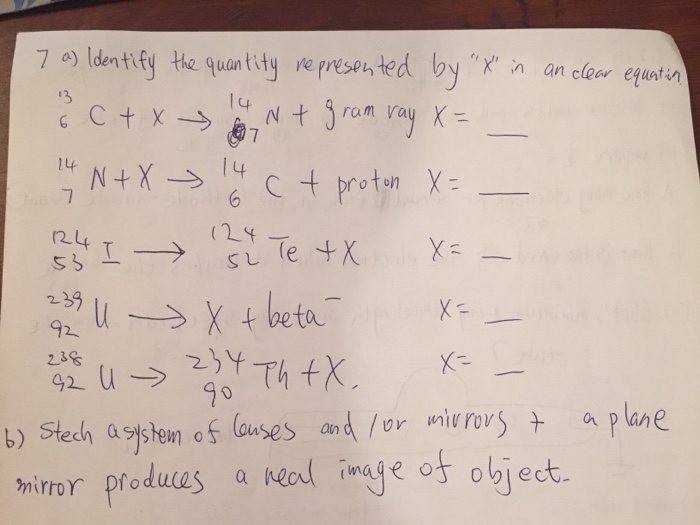 7 a) Identify the quantity represented by "X" in an clear equatin
13 6 C + X → 14 7 N + gram ray X = __
14 7 N + X → 14 6 C + proton X = __
124 53 I → 124 52 Te + X X = __
239 92 U → X + beta⁻ X = __
238 92 U → 234 90 Th + X. X = __
b) Stech a system of lenses and / or mirrors + a plane
mirror produces a real image of object.